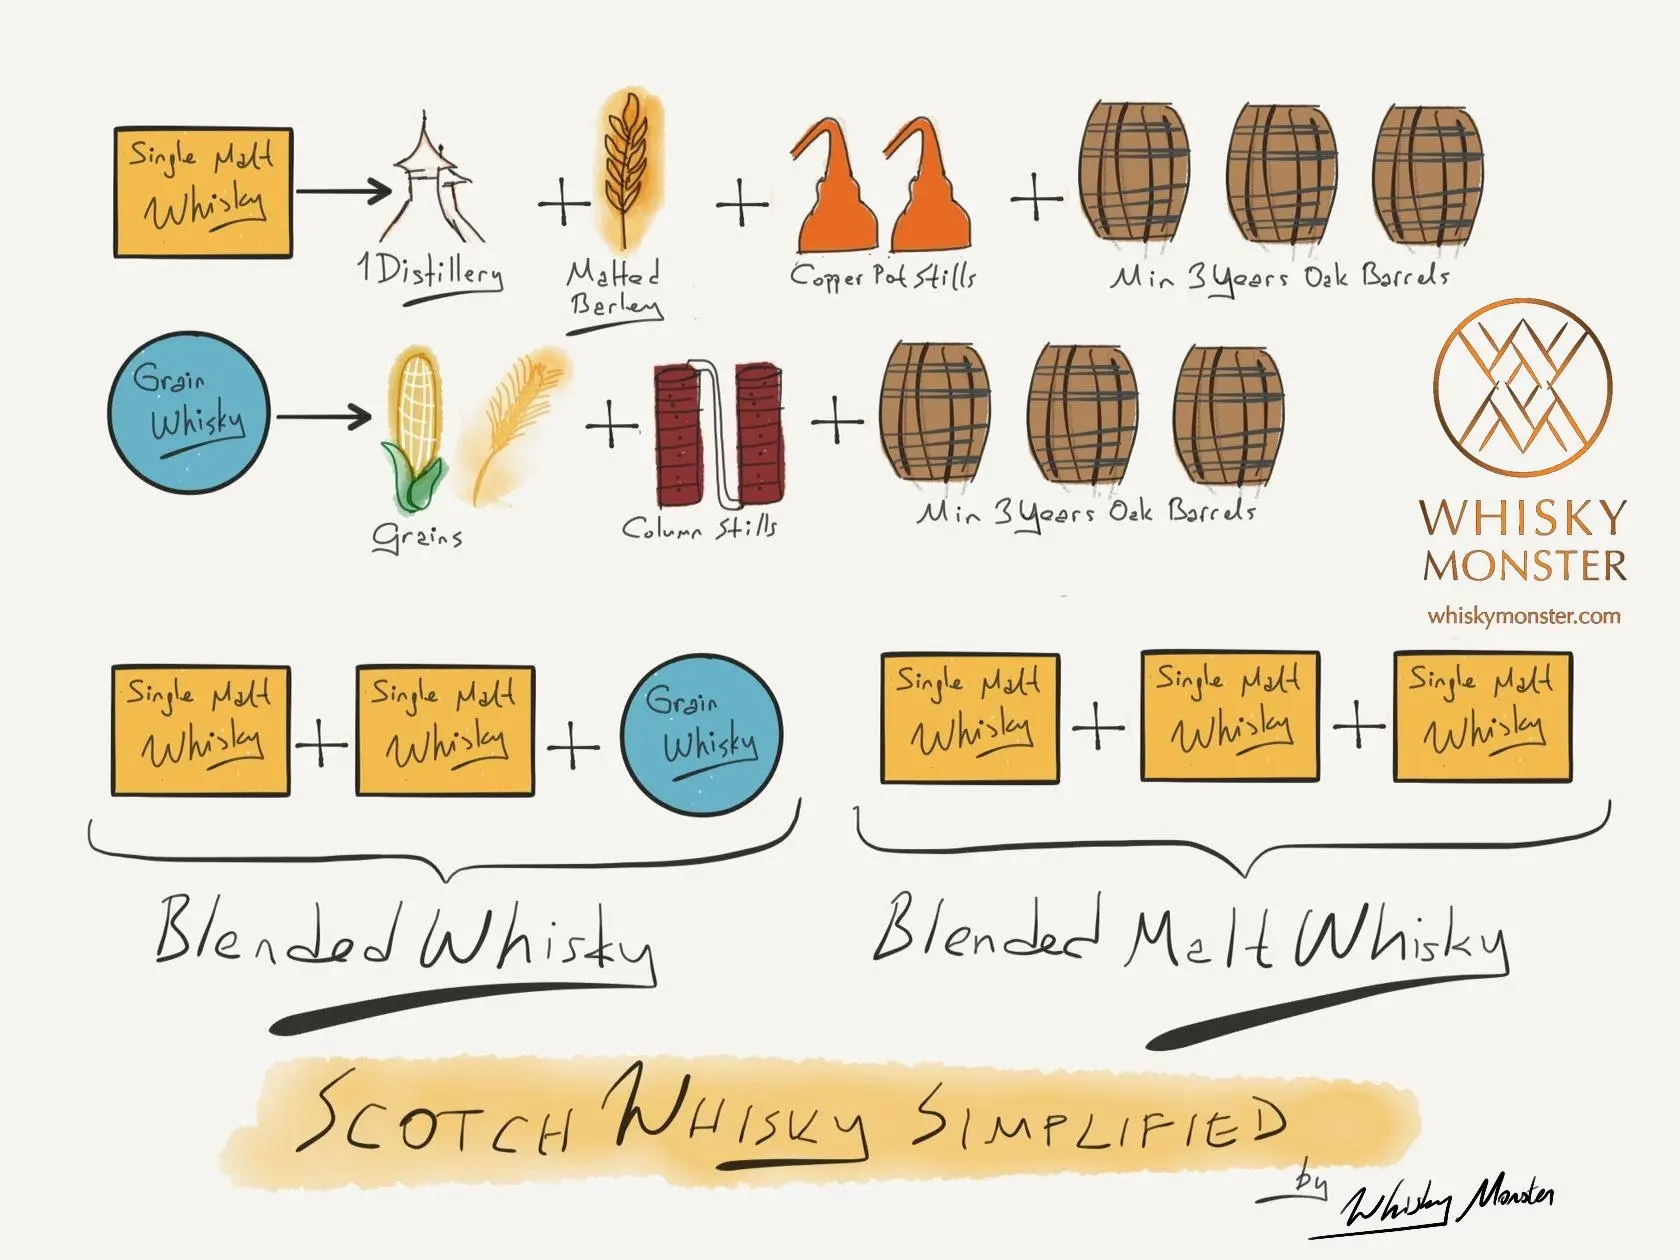 Single Malt
Whisky
1 Distillery
Malted
Barley
Copper Pot Stills
Min 3 Years Oak Barrels
Grain
Whisky
Grains
Column Stills
Min 3 Years Oak Barrels
WHISKY
MONSTER
whiskymonster.com
Single Malt
Whisky
Single Malt
Whisky
Grain
Whisky
Single Malt
Whisky
Single Malt
Whisky
Single Malt
Whisky
Blended Whisky
Blended Malt Whisky
SCOTCH WHISKY SIMPLIFIED
by
Whisky Monster